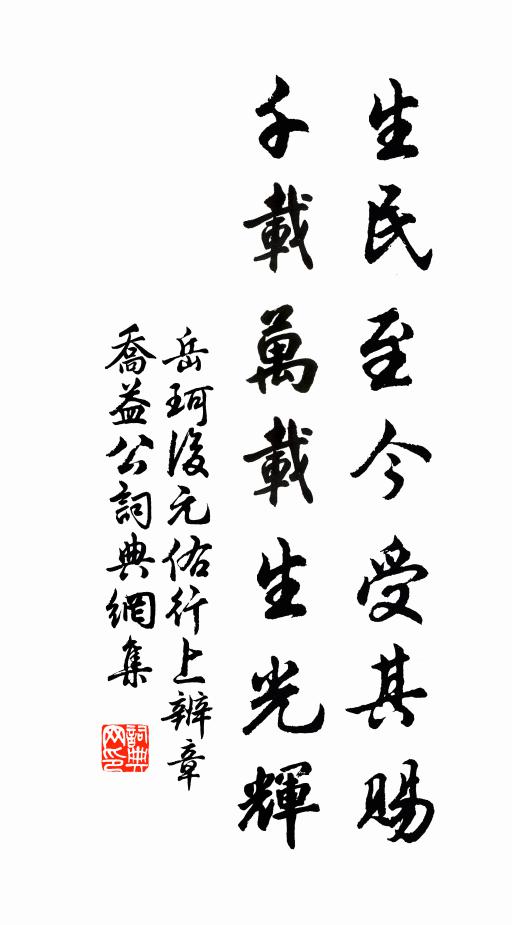 生民至今受其賜
千載萬載生光輝
岳珂後元佑行上辨章
喬益公詞典網集
詞典网印